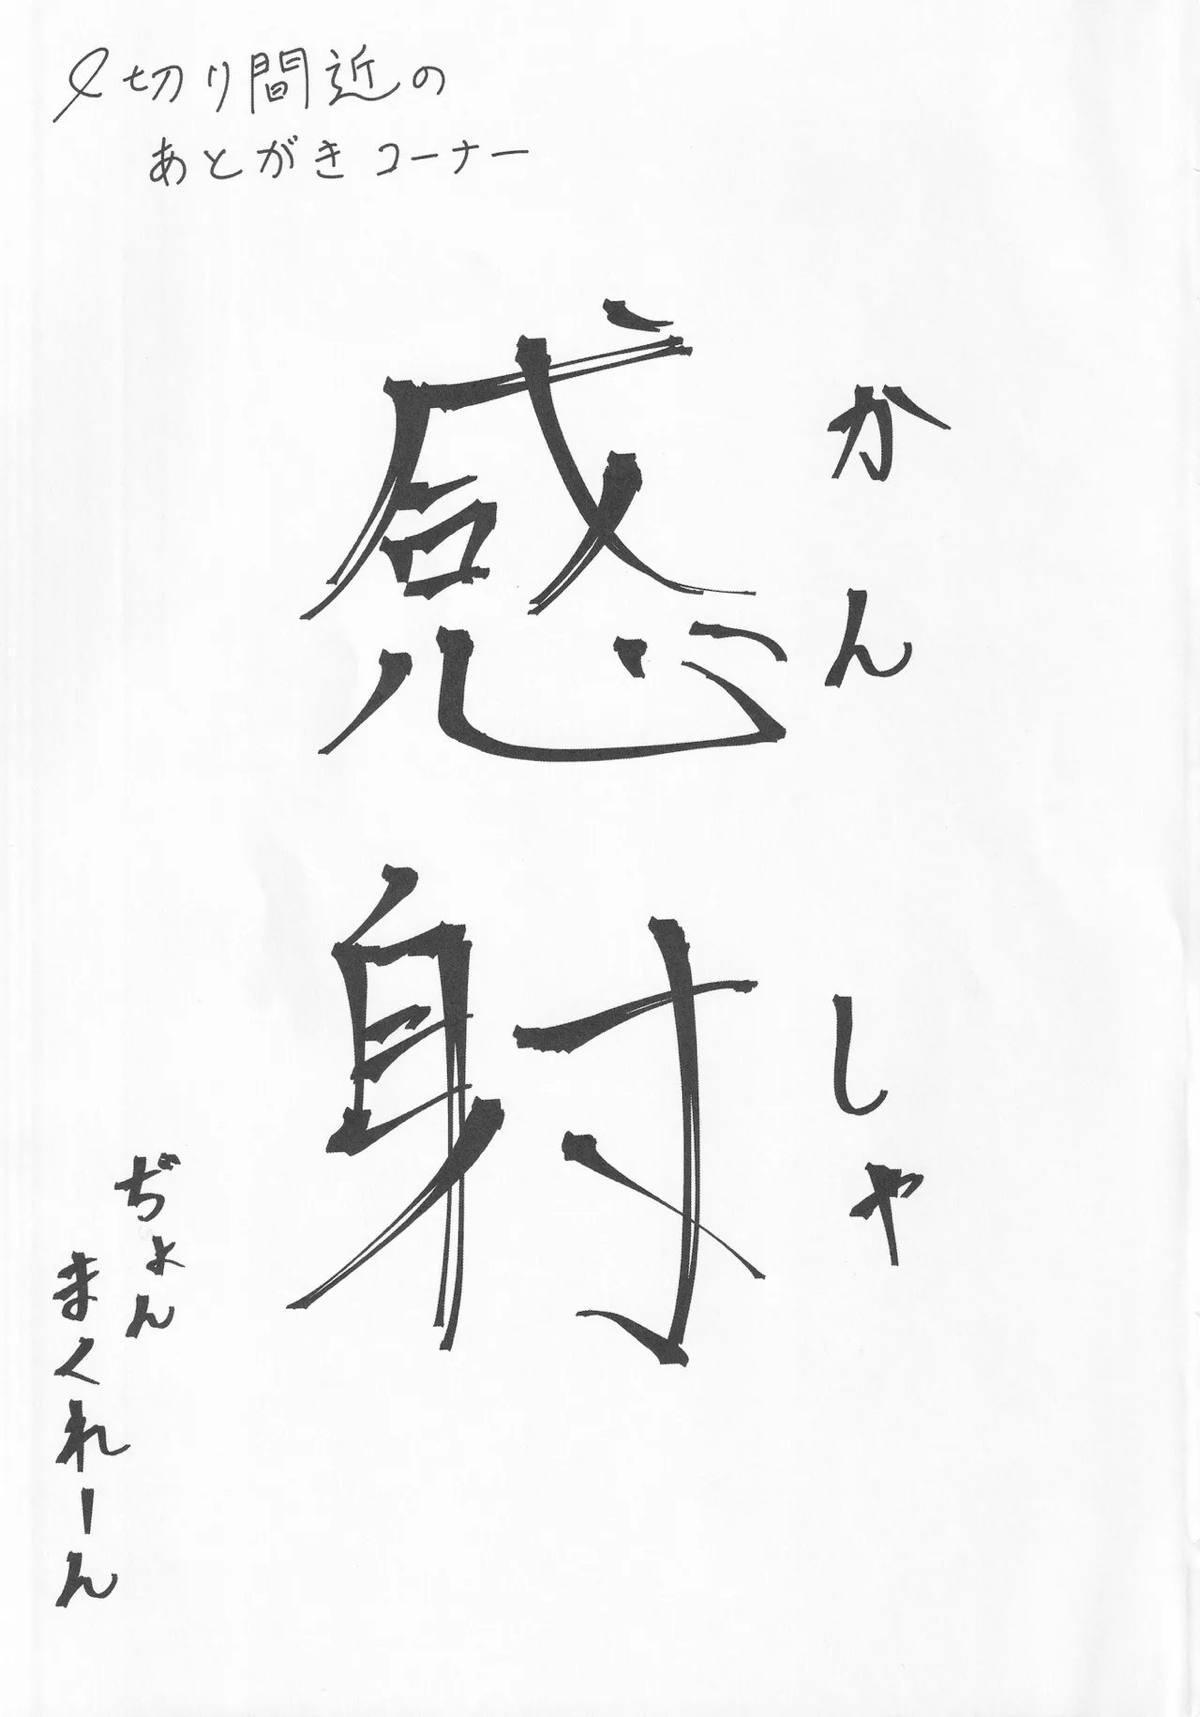 〆切り間近の
あとがきコーナー
感射
かんしゃ
ぢょん
まくれーん